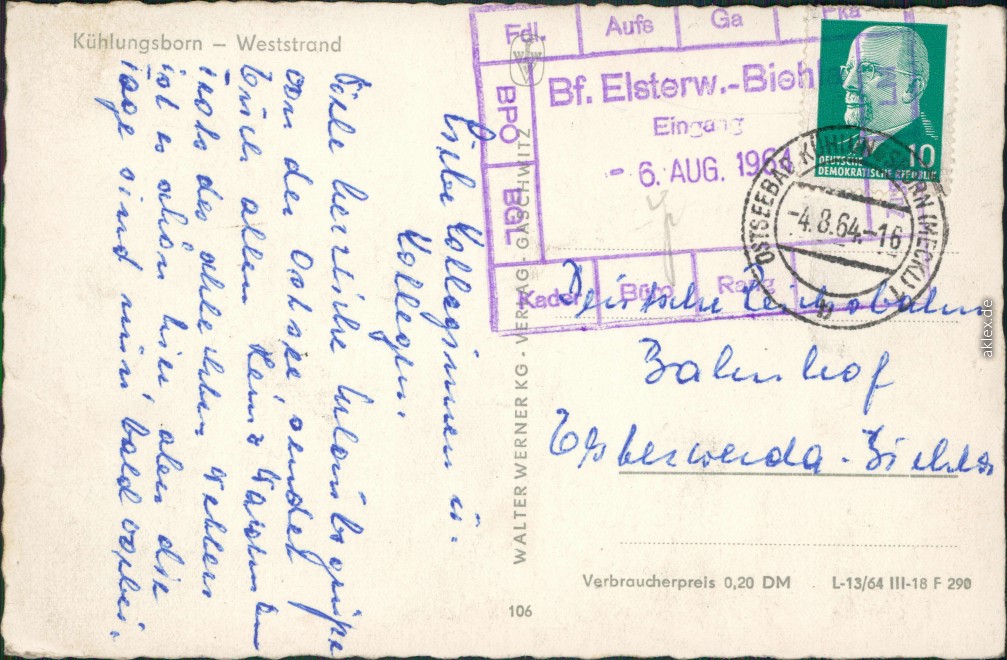 Kühlungsborn – Weststrand
Liebe Kolleginnen u.
Kollegen.
Viele herzliche Urlaubsgrüße
von der Ostsee, sendet
Euch allen Heinz
Trotz des schlechten Wetters
ist es schön hier, aber die
Tage sind nun bald vorbei.
WALTER WERNER KG - VERLAG - GASCHWITZ
106
Fdl. Aufs Ga Fka
Bf. Elsterw.-Biehla
Eingang
- 6. AUG. 1964
BPO
BGL
Kader Büro Rang
OSTSEEBAD KÜHLUNGSBORN (MECKL) 1
-4.8.64-16
b
10
DEUTSCHE
DEMOKRATISCHE REPUBLIK
Deutsche Reichsbahn
Bahnhof
Elsterwerda-Biehla
Verbraucherpreis 0,20 DM
L-13/64 III-18 F 290
aklex.de